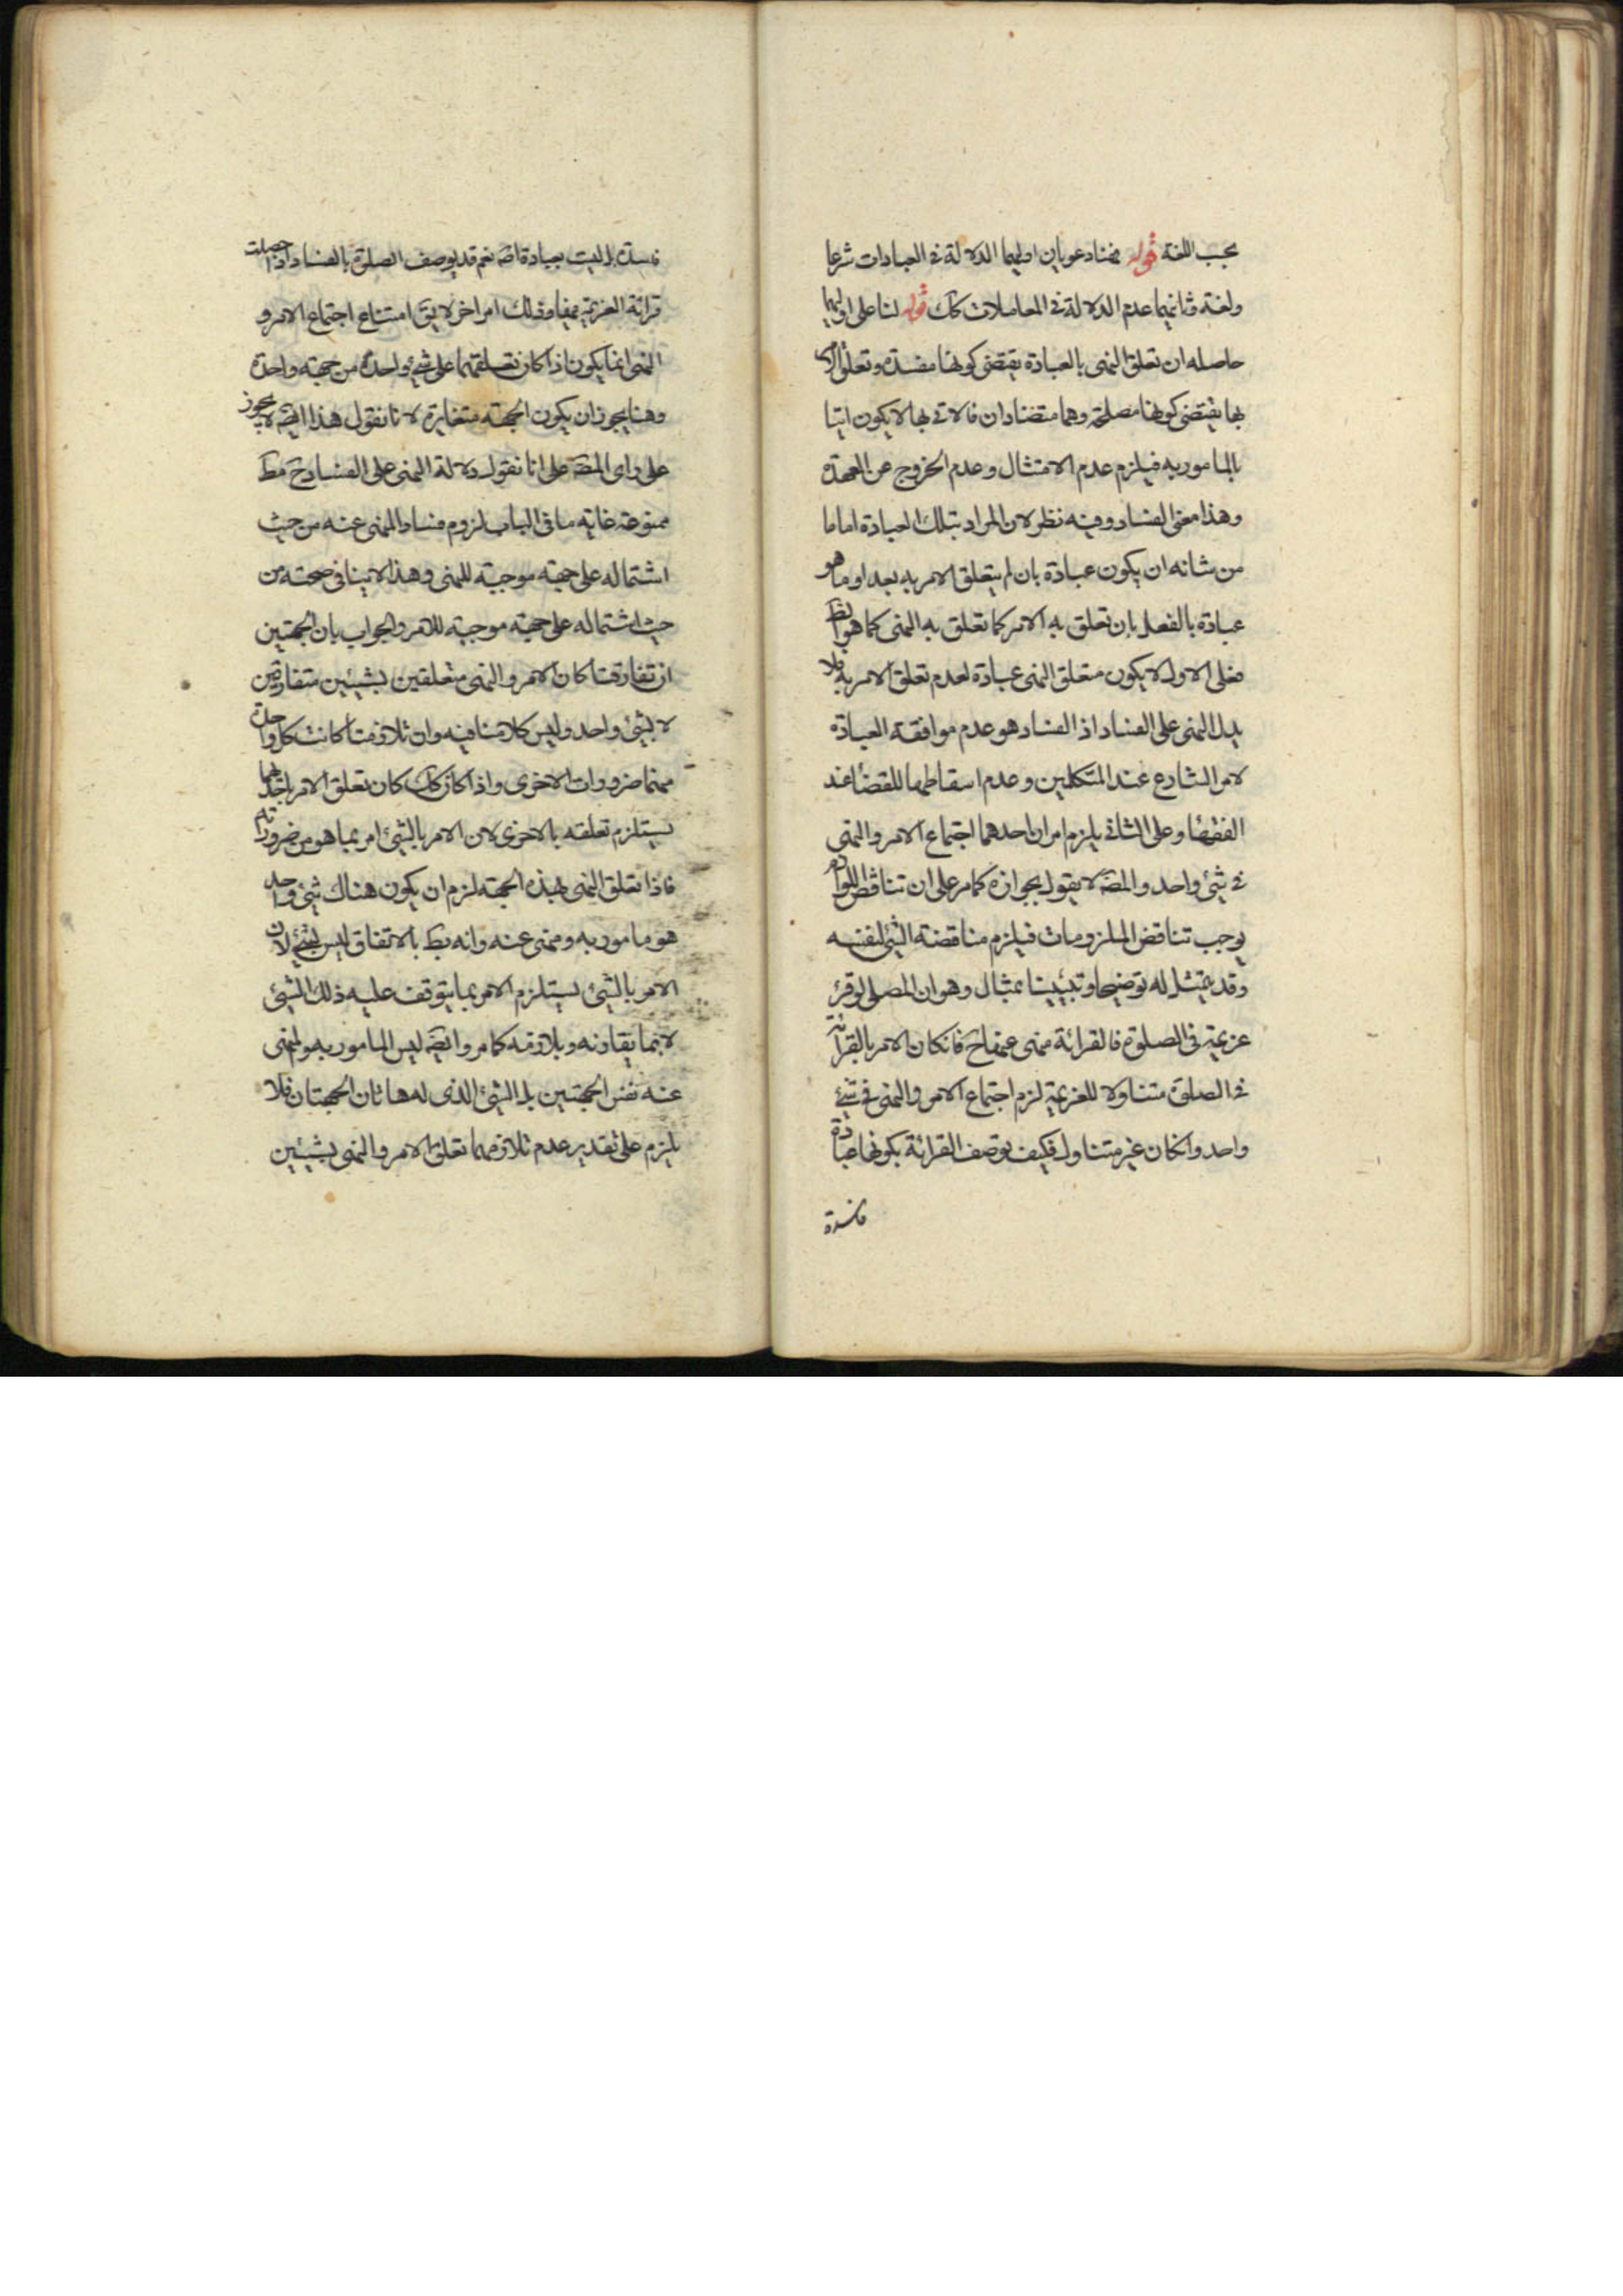 بحسب اللغة قوله فهنا دعويان اوليهما الدلالة فى العبادات شرعا
ولغة وثانيهما عدم الدلالة فى المعاملات كك قوله لنا على اوليهما
حاصله ان تعلق النهى بالعبادة يقتضى كونها مفسدة وتعلق الامر
بها يقتضى كونها مصلحة وهما متضادان فالاتى بها لا يكون اتيا
بالمامور به فيلزم عدم الامتثال وعدم الخروج عن العهدة
وهذا معنى الفساد وفيه نظر لان المراد بتلك العبادة اما ما
من شانه ان يكون عبادة بان لم يتعلق الامر به بعد او ما هو
عبادة بالفعل بان تعلق به الامر كما تعلق به النهى كما هو الظ
فعلى الاول لا يكون متعلق النهى عبادة لعدم تعلق الامر به فلا
يدل النهى على الفساد اذ الفساد هو عدم موافقة العبادة
لامر الشارع عند المتكلمين وعدم اسقاطها للقضاء عند
الفقهاء وعلى الثانى يلزم امران احدهما اجتماع الامر والنهى
فى شئ واحد والمصّ لا يقول بجوازه كما مر على ان تناقض اللوازم
يوجب تناقض الملزومات فيلزم مناقضة الشئ لنفسه
وقد يتمثل له توضيحا وتبيينا بمثال وهو ان المصلى لو قرئ
عزيمة فى الصلوة فالقرائة منهى عنها فح فانكان الامر بالقرائة
فى الصلوة متناولا للعزيمة لزم اجتماع الامر والنهى فى شئ
واحد وانكان غير متناول فكيف توصف القرائة بكونها عبادة
فاسدة
فاسدة بل ليت بعبادة اصّ نعم قد يوصف الصلوة بالفساد اذا حصلت
قرائة العزيمة فيها وذلك امر اخر لا يق امتناع اجتماع الامر و
النهى انما يكون اذا كان تعلقهما على شئ واحدة من جهة واحدة
وهنا يجوز ان يكون الجهة متغايرة لانا نقول هذا ايضّ لا يجوز
على راى المصّ على انا نقول دلالة النهى على الفساد ح مط
ممنوعة غاية ما فى الباب لزوم فساد المنهى عنه من حيث
اشتماله على جهة موجبة للنهى وهذا لا ينافى صحته من
حيث اشتماله على جهة موجبة للامر والجواب بان الجهتين
ان تفارقتا كان الامر والنهى متعلقين بشيئين متفارقين
لا بشئ واحد وليس كلامنا فيه وان تلازمتا كانت كل واحدة
منهما ضروروات الاخرى واذا كان كك كان تعلق الامر باحديهما
يستلزم تعلقه بالاخرى لان الامر بالشئ امر بما هو من ضروراته
فاذا تعلق النهى بهذه الجهة لزم ان يكون هناك شئ واحد
هو مامور به ومنهى عنه وانه بط بالاتفاق ليس بشئ لان
الامر بالشئ يستلزم الامر بما يتوقف عليه ذلك الشئ
لا بما يقارنه ويلازمه كما مر وايضّ ليس المامور به والمنهى
عنه نفس الجهتين بل الشئ الذى له هاتان الجهتان فلا
يلزم على تقدير عدم تلازمهما تعلق الامر والنهى بشيئين